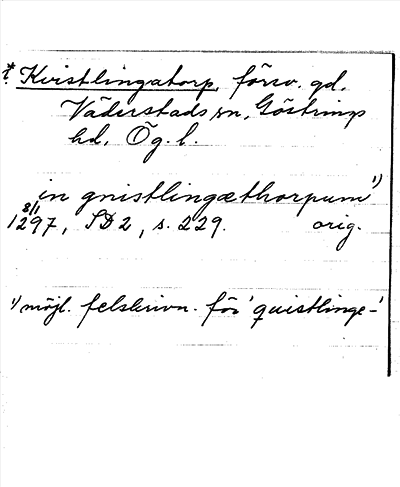 t* Kvistlingatorp, försv. gd,
Väderstads sn, Göstrings
hd, Ög. l.
in gnistlingæthorpum¹)
8/1
1297, SD 2, s. 229. orig.
¹) möjl. felskrivn. för 'quistlinge-'